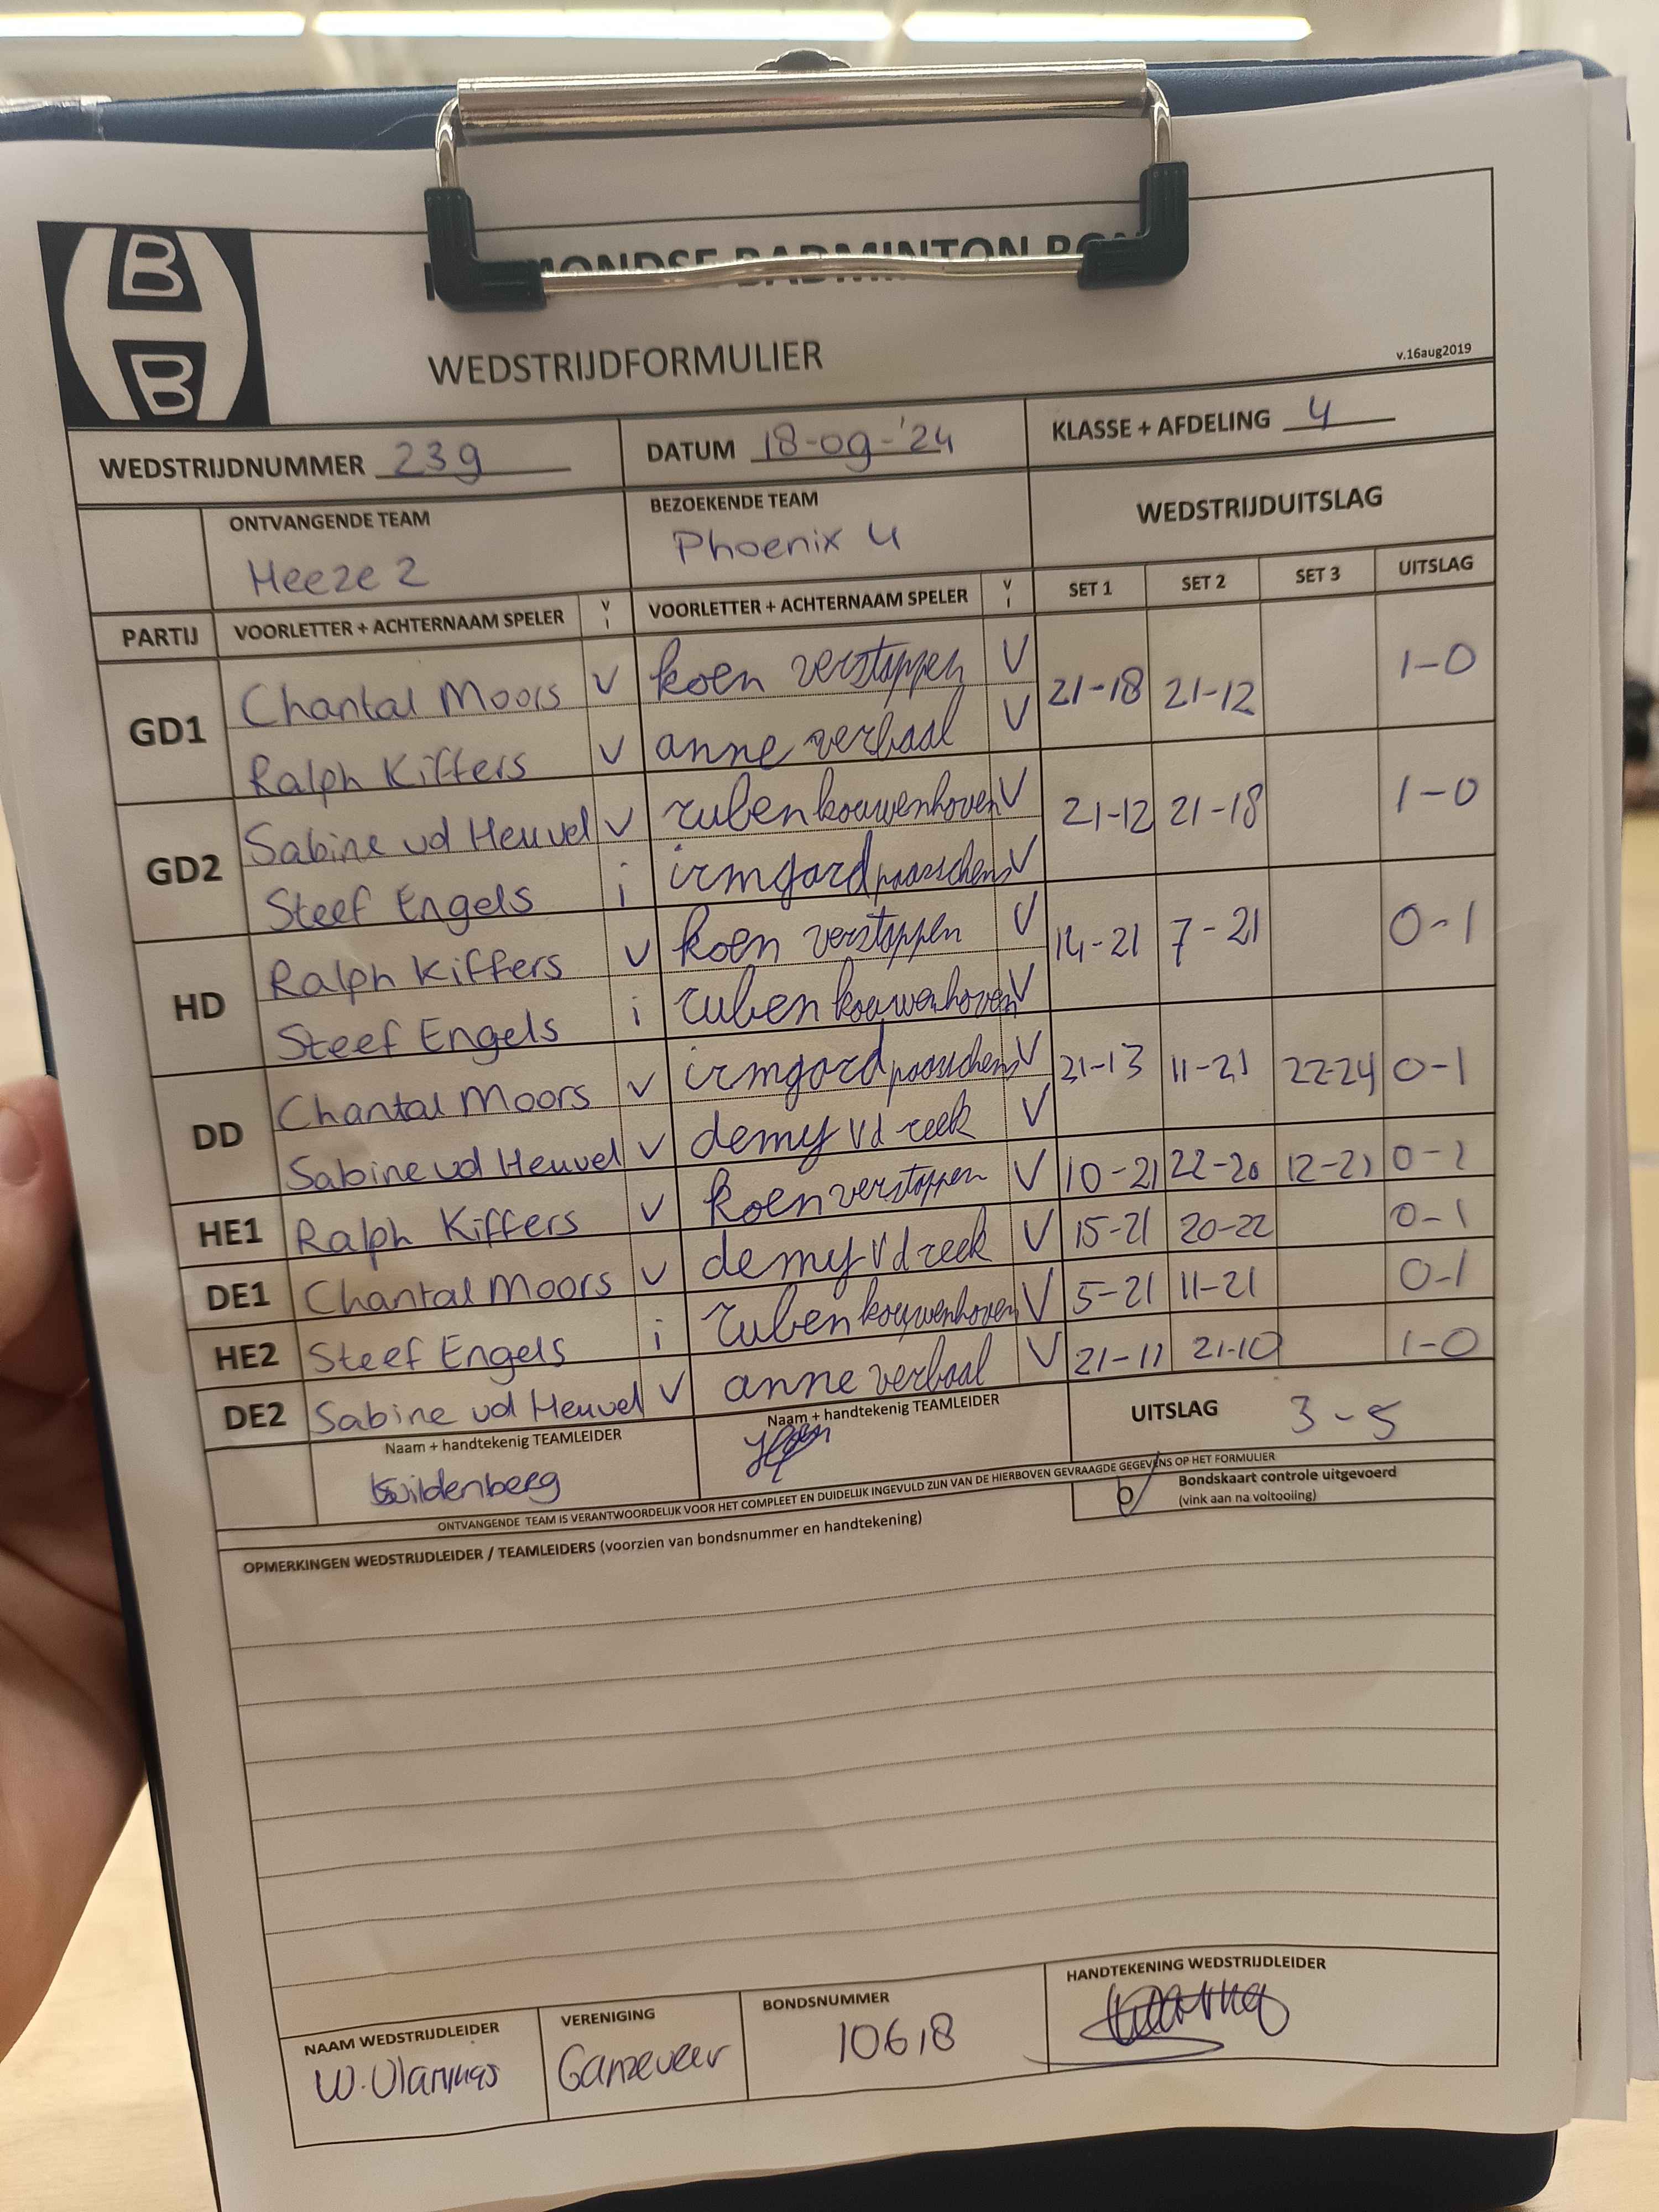 B
B
MONDSE BADMINTON BON
WEDSTRIJDFORMULIER
v.16aug2019
WEDSTRIJDNUMMER 239 DATUM 18-09-'24 KLASSE + AFDELING 4
ONTVANGENDE TEAM BEZOEKENDE TEAM WEDSTRIJDUITSLAG
Heeze 2 Phoenix 4
PARTIJ VOORLETTER + ACHTERNAAM SPELER V I VOORLETTER + ACHTERNAAM SPELER V I SET 1 SET 2 SET 3 UITSLAG
GD1 Chantal Moors V koen verstappen V 21-18 21-12 1-0
Ralph Kiffers V anne verbaal V
GD2 Sabine vd Heuvel V ruben kouwenhoven V 21-12 21-18 1-0
Steef Engels i irmgard paasschens V
HD Ralph Kiffers V koen verstappen V 14-21 7-21 0-1
Steef Engels i ruben kouwenhoven V
DD Chantal Moors V irmgard paasschens V 21-13 11-21 22-24 0-1
Sabine vd Heuvel V demy vd reek V
HE1 Ralph Kiffers V koen verstappen V 10-21 22-20 12-21 0-1
DE1 Chantal Moors V demy vd reek V 15-21 20-22 0-1
HE2 Steef Engels i ruben kouwenhoven V 5-21 11-21 0-1
DE2 Sabine vd Heuvel V anne verbaal V 21-11 21-10 1-0
Naam + handtekenig TEAMLEIDER Naam + handtekenig TEAMLEIDER UITSLAG 3-5
ONTVANGENDE TEAM IS VERANTWOORDELIJK VOOR HET COMPLEET EN DUIDELIJK INGEVULD ZIJN VAN DE HIERBOVEN GEVRAAGDE GEGEVENS OP HET FORMULIER
Bondskaart controle uitgevoerd
(vink aan na voltooiing)
OPMERKINGEN WEDSTRIJDLEIDER / TEAMLEIDERS (voorzien van bondsnummer en handtekening)
NAAM WEDSTRIJDLEIDER VERENIGING BONDSNUMMER HANDTEKENING WEDSTRIJDLEIDER
W. Ganzeveer 10618